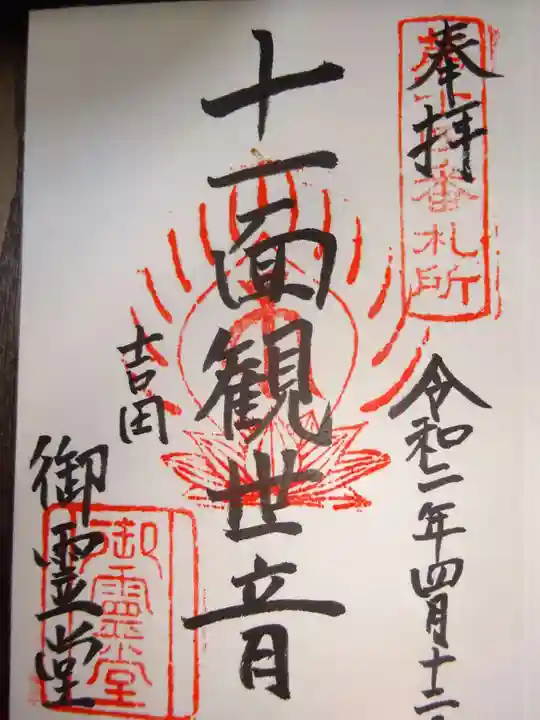 奉拝
番札所
令和二年四月十二
十一面観世音
吉田
御霊堂
御靈堂